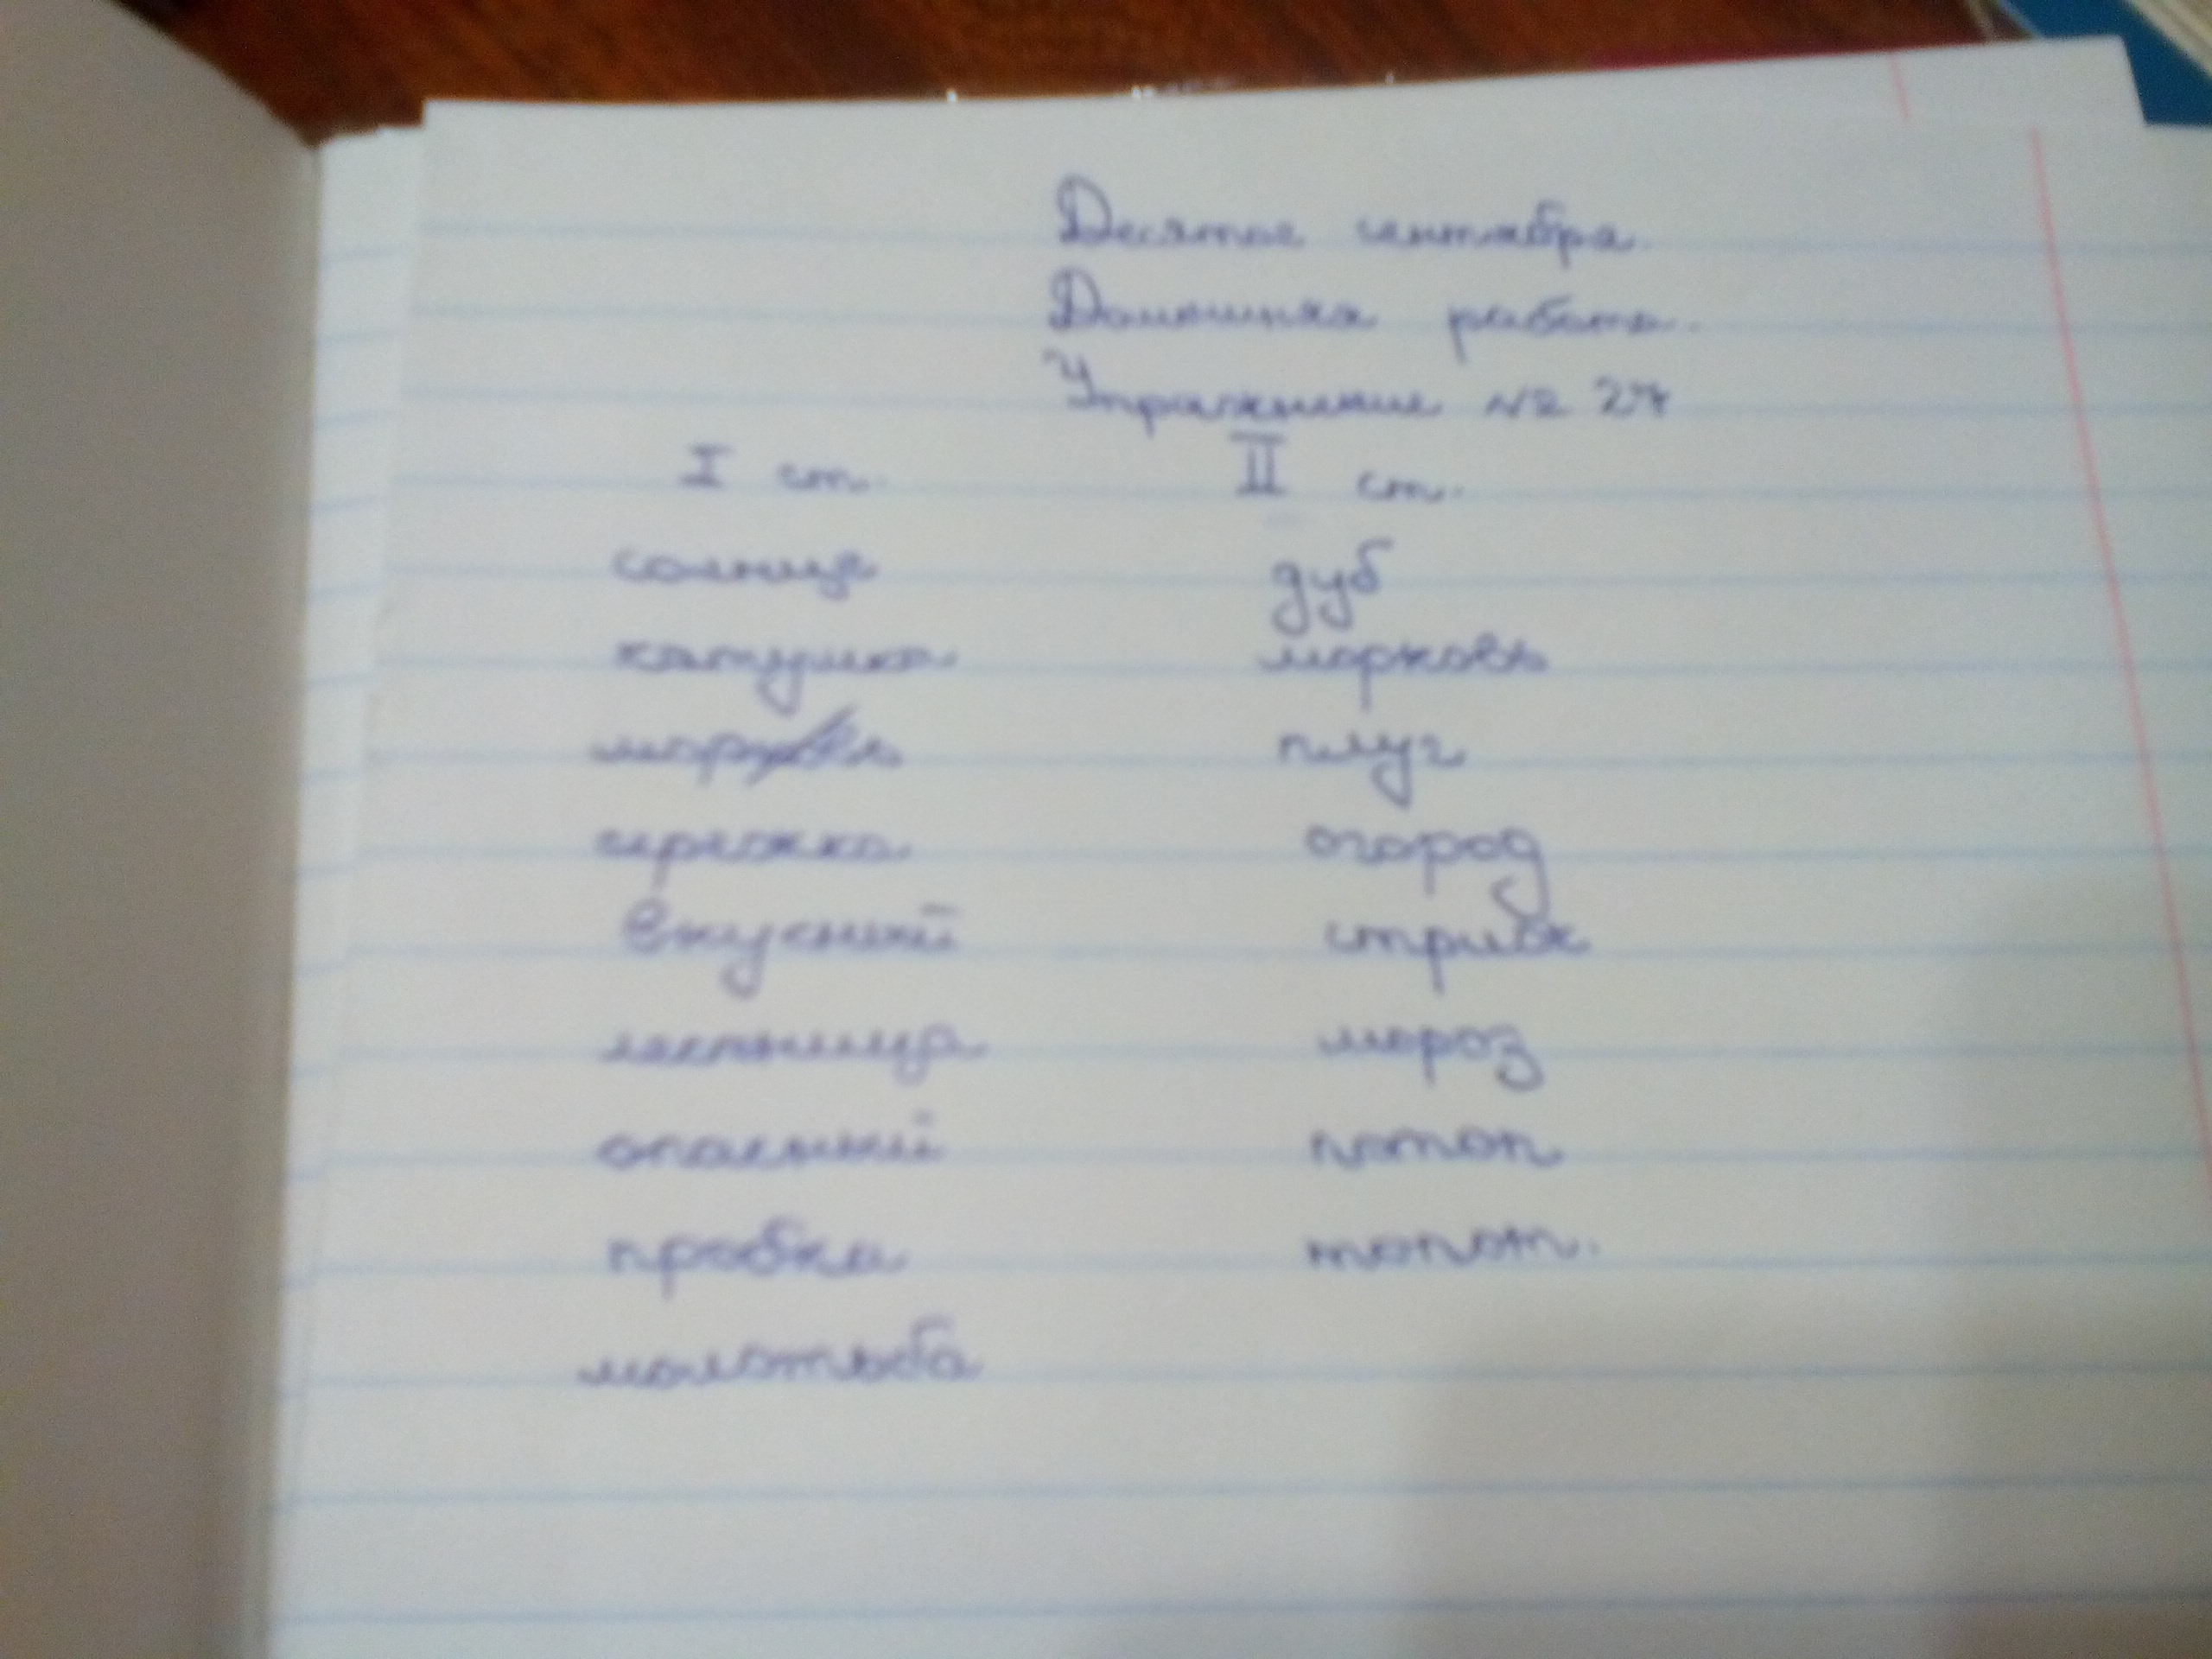 Десятое сентября.
Домашняя работа.
Упражнение № 27
I ст. II ст.
солнце дуб
катушка морковь
плуг
сережка огород
вкусный
лестница мороз
опасный потоп
пробка топот.
молотьба